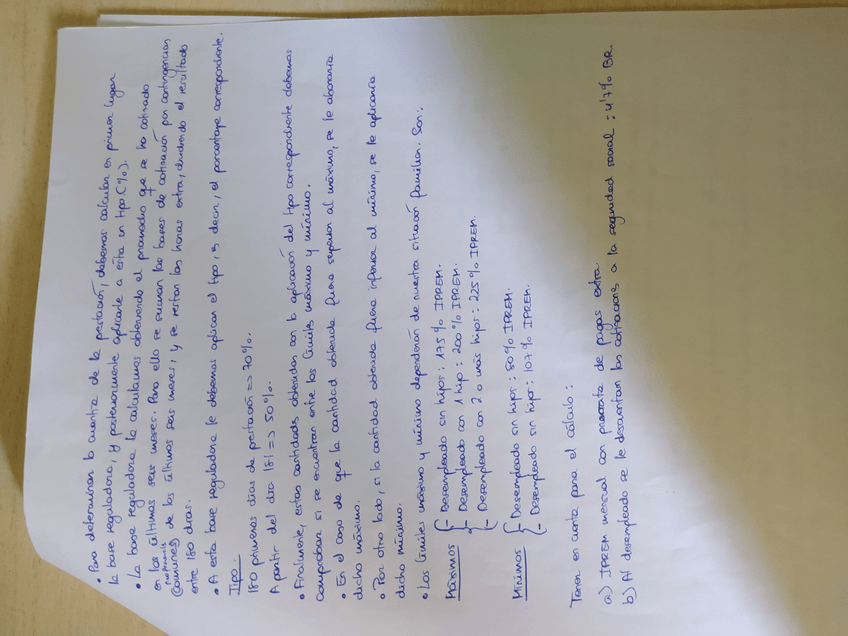 • Para determinar la cuantía de la prestación, debemos calcular en primer lugar
la base reguladora, y posteriormente aplicarle a ésta un tipo (%).
• La base reguladora la calculamos obteniendo el promedio que se ha cotizado
en los últimos seis meses. Para ello se suman las bases de cotización por contingencias
comunes de los últimos seis meses, y se restan las horas extra, dividiendo el resultado
entre 180 días.
• A esta base reguladora le debemos aplicar el tipo, es decir, el porcentaje correspondiente.
Tipo:
180 primeros días de prestación => 70%.
A partir del día 181 => 50%.
• Finalmente, estas cantidades obtenidas con la aplicación del tipo correspondiente debemos
comprobar si se encuentran entre los límites máximo y mínimo.
• En el caso de que la cantidad obtenida fuera superior al máximo, se le abonaría
dicho máximo.
• Por otro lado, si la cantidad obtenida fuera inferior al mínimo, se le aplicaría
dicho mínimo.
• Los límites máximo y mínimo dependerán de nuestra situación familiar. Son:
Máximos { - Desempleado sin hijos: 175% IPREM.
- Desempleado con 1 hijo: 200% IPREM.
- Desempleado con 2 o más hijos: 225% IPREM.
Mínimos { - Desempleado sin hijos: 80% IPREM.
- Desempleado sin hijos: 107% IPREM.
Tener en cuenta para el cálculo:
a) IPREM mensual con prorrata de pagas extra.
b) Al desempleado se le descuentan las cotizaciones a la seguridad social: 4'7% BR.